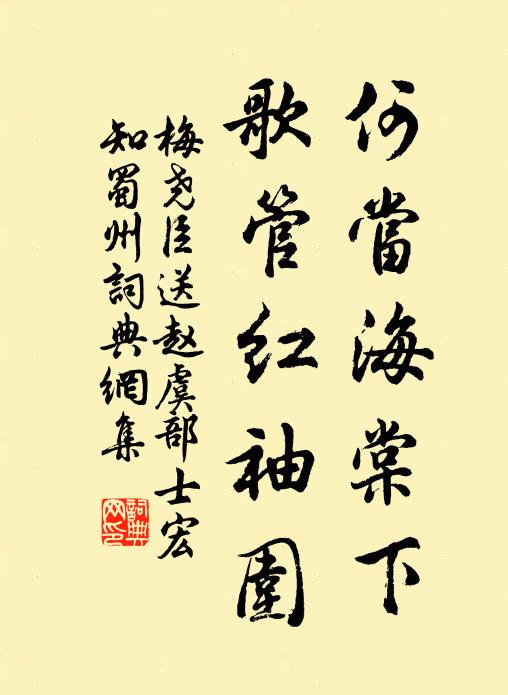 何當海棠下
歌管红袖圍
梅尧臣送赵虞部士宏
知蜀州詞典網集
詞典
网印